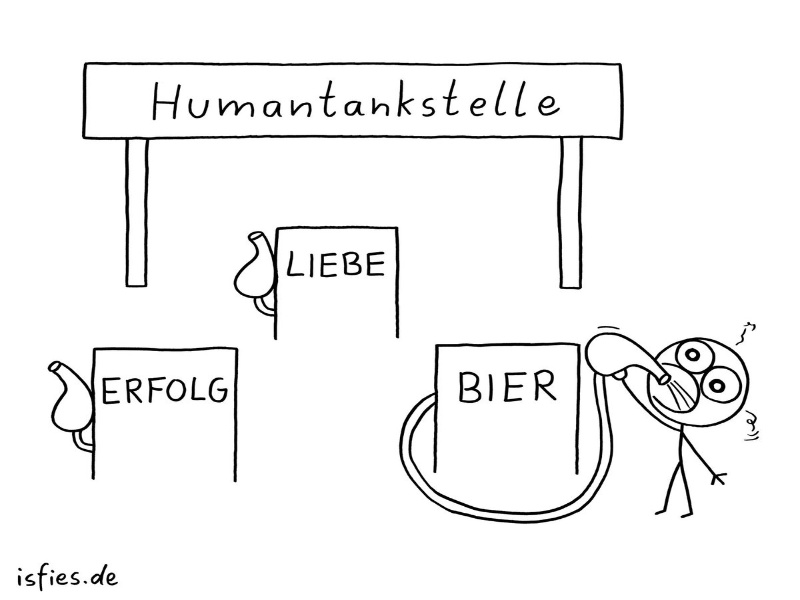 Humantankstelle
LIEBE
ERFOLG
BIER
isfies.de